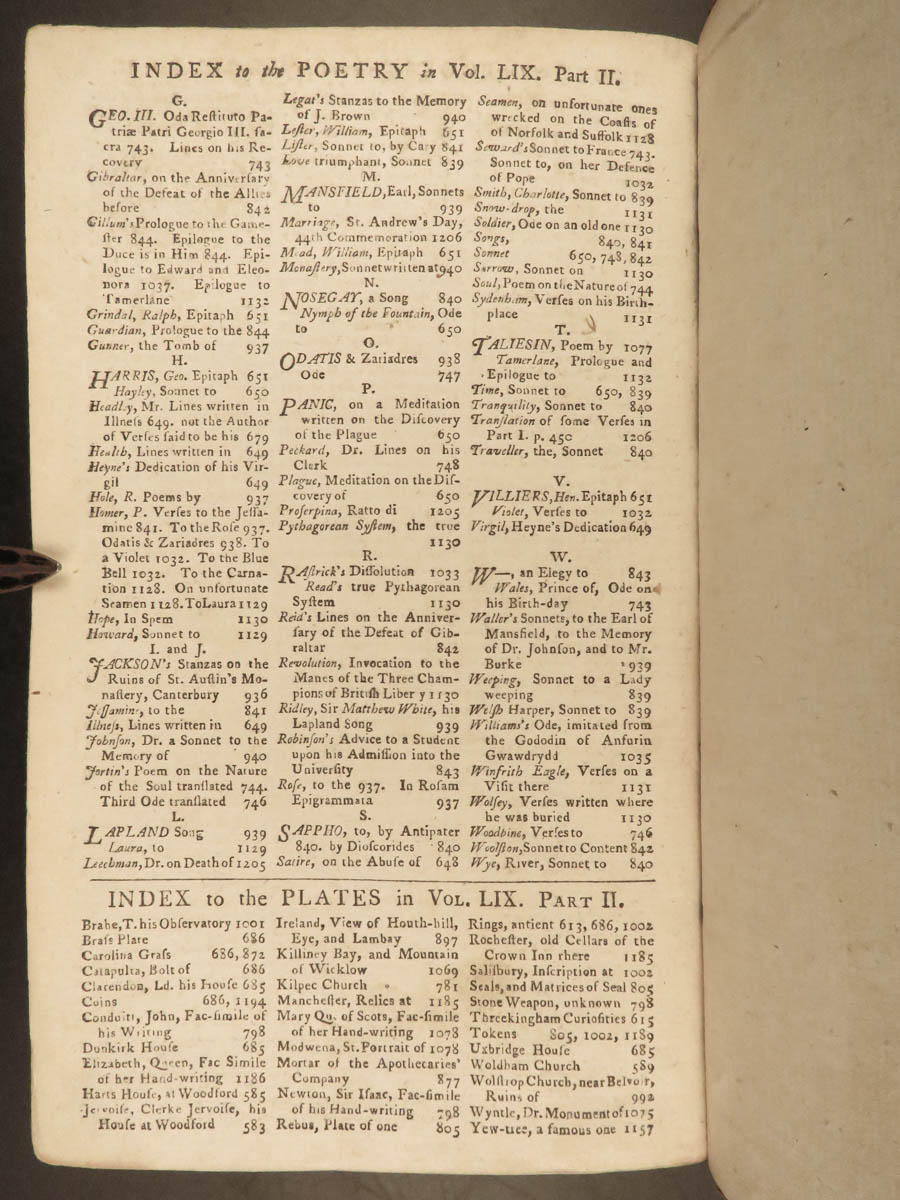 INDEX to the POETRY in Vol. LIX. Part II.
G.
GEO. III. Oda Reſtituto Pa-
triæ Patri Georgio III. ſa-
cra 743. Lines on his Re-
covery 743
Gibraltar, on the Anniverſary
of the Defeat of the Allies
before 842
Gillum's Prologue to the Game-
ſter 844. Epilogue to the
Duce is in Him 844. Epi-
logue to Edward and Eleo-
nora 1037. Epilogue to
Tamerlane 1132
Grindal, Ralph, Epitaph 651
Guardian, Prologue to the 844
Gunner, the Tomb of 937
H.
HARRIS, Geo. Epitaph 651
Hayley, Sonnet to 650
Headley, Mr. Lines written in
Illneſs 649. not the Author
of Verſes ſaid to be his 679
Health, Lines written in 649
Heyne's Dedication of his Vir-
gil 649
Hole, R. Poems by 937
Homer, P. Verſes to the Jeſſa-
mine 841. To the Roſe 937.
Odatis & Zariadres 938. To
a Violet 1032. To the Blue
Bell 1032. To the Carna-
tion 1128. On unfortunate
Seamen 1128. To Laura 1129
Hope, In Spem 1130
Howard, Sonnet to 1129
I. and J.
JACKSON's Stanzas on the
Ruins of St. Auſtin's Mo-
naſtery, Canterbury 936
Jeſſamine, to the 841
Illneſs, Lines written in 649
Johnſon, Dr. a Sonnet to the
Memory of 940
Jortin's Poem on the Nature
of the Soul tranſlated 744.
Third Ode tranſlated 746
L.
LAPLAND Song 939
Laura, to 1129
Leechman, Dr. on Death of 1205
Legat's Stanzas to the Memory
of J. Brown 940
Leſter, William, Epitaph 651
Liſter, Sonnet to, by Cary 841
Love triumphant, Sonnet 839
M.
MANSFIELD, Earl, Sonnets
to 939
Marriage, St. Andrew's Day,
44th Commemoration 1206
Mead, William, Epitaph 651
Monaſtery, Sonnet written at 940
N.
NOSEGAY, a Song 840
Nymph of the Fountain, Ode
to 650
O.
ODATIS & Zariadres 938
Ode 747
P.
PANIC, on a Meditation
written on the Diſcovery
of the Plague 650
Peckard, Dr. Lines on his
Clerk 748
Plague, Meditation on the Diſ-
covery of 650
Proſerpina, Ratto di 1205
Pythagorean Syſtem, the true
1130
R.
RASTRICK's Diſſolution 1033
Read's true Pythagorean
Syſtem 1130
Reid's Lines on the Anniver-
ſary of the Defeat of Gib-
raltar 842
Revolution, Invocation to the
Manes of the Three Cham-
pions of Britiſh Liber y 1130
Ridley, Sir Matthew White, his
Lapland Song 939
Robinſon's Advice to a Student
upon his Admiſſion into the
Univerſity 843
Roſe, to the 937. In Roſam
Epigrammata 937
S.
SAPPHO, to, by Antipater
840. by Dioſcorides 840
Satire, on the Abuſe of 648
Seamen, on unfortunate ones
wrecked on the Coaſts of
of Norfolk and Suffolk 1128
Seward's Sonnet to France 743.
Sonnet to, on her Defence
of Pope 1032
Smith, Charlotte, Sonnet to 839
Snow-drop, the 1131
Soldier, Ode on an old one 1130
Songs, 840, 841
Sonnet 650, 748, 842
Sorrow, Sonnet on 1130
Soul, Poem on the Nature of 744
Sydenham, Verſes on his Birth-
place 1131
T.
TALIESIN, Poem by 1077
Tamerlane, Prologue and
Epilogue to 1132
Time, Sonnet to 650, 839
Tranquility, Sonnet to 840
Tranſlation of ſome Verſes in
Part I. p. 450 1206
Traveller, the, Sonnet 840
V.
VILLIERS, Hen. Epitaph 651
Violet, Verſes to 1032
Virgil, Heyne's Dedication 649
W.
W—, an Elegy to 843
Wales, Prince of, Ode on
his Birth-day 743
Waller's Sonnets, to the Earl of
Mansfield, to the Memory
of Dr. Johnſon, and to Mr.
Burke 939
Weeping, Sonnet to a Lady
weeping 839
Welſh Harper, Sonnet to 839
Williams's Ode, imitated from
the Gododin of Anfurin
Gwawdrydd 1035
Winfrith Eagle, Verſes on a
Viſit there 1131
Wolſey, Verſes written where
he was buried 1130
Woodbine, Verſes to 746
Woolſton, Sonnet to Content 842
Wye, River, Sonnet to 840
INDEX to the PLATES in VOL. LIX. PART II.
Brahe, T. his Obſervatory 1001
Braſs Plate 686
Carolina Graſs 686, 872
Catapulta, Bolt of 686
Clarendon, Ld. his Houſe 685
Coins 686, 1194
Conduitt, John, Fac-ſimile of
his Writing 798
Dunkirk Houſe 685
Elizabeth, Queen, Fac Simile
of her Hand-writing 1186
Harts Houſe, at Woodford 585
Jervoiſe, Clerke Jervoiſe, his
Houſe at Woodford 583
Ireland, View of Houth-hill,
Eye, and Lambay 897
Killiney Bay, and Mountain
of Wicklow 1069
Kilpec Church 781
Mancheſter, Relics at 1185
Mary Qu. of Scots, Fac-ſimile
of her Hand-writing 1078
Modwena, St. Portrait of 1078
Mortar of the Apothecaries'
Company 877
Newton, Sir Iſaac, Fac-ſimile
of his Hand-writing 798
Rebus, Plate of one 805
Rings, antient 613, 686, 1002
Rocheſter, old Cellars of the
Crown Inn there 1185
Saliſbury, Inſcription at 1002
Seals, and Matrices of Seal 805
Stone Weapon, unknown 798
Threekingham Curioſities 615
Tokens 805, 1002, 1189
Uxbridge Houſe 685
Woldham Church 589
Wolſtrop Church, near Belvoir,
Ruins of 992
Wyntle, Dr. Monument of 1075
Yew-tree, a famous one 1157